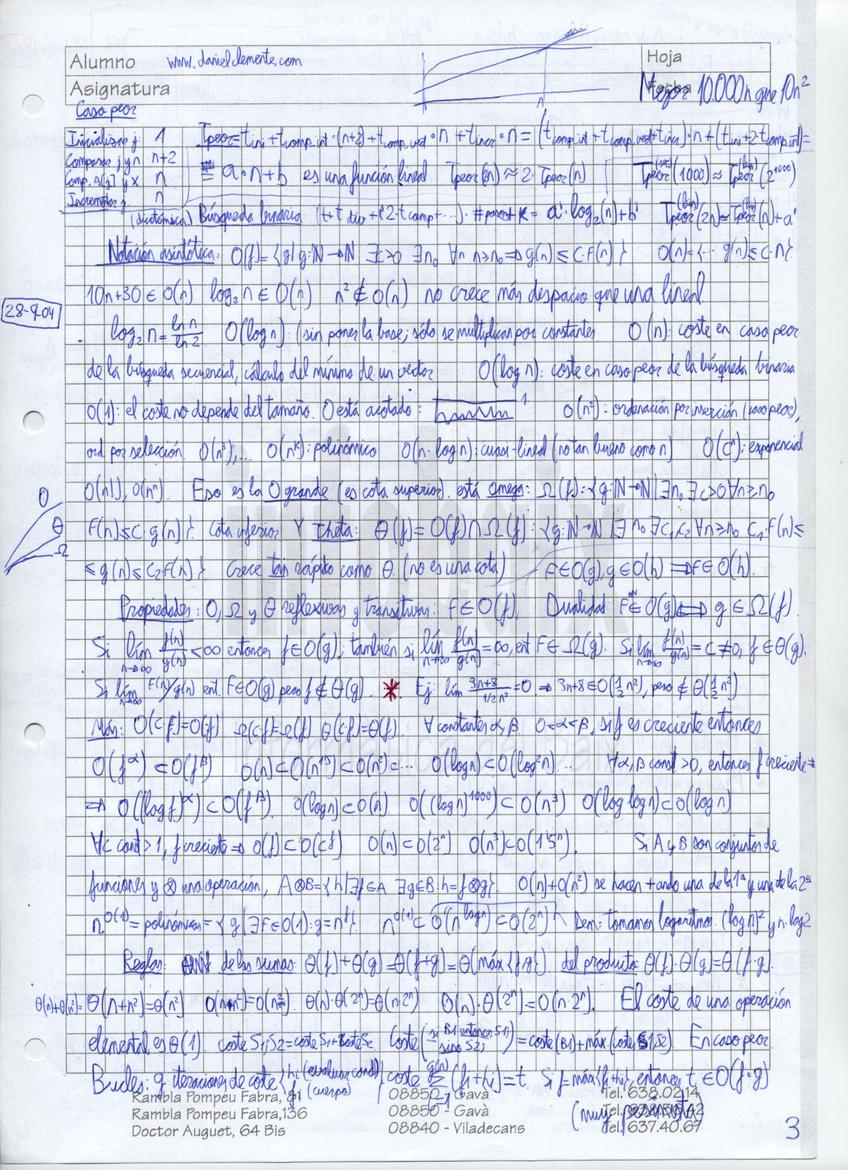 Alumno www.danielclemente.com Hoja
Asignatura Mejor 10.000n que 10n²
Caso peor
Inicializar j: 1 Tpeor = t_ini + t_comp.int·(n+2) + t_comp.vect·n + t_incr·n = (t_comp.int + t_comp.vect + t_incr)·n + (t_ini + 2·t_comp.int) =
Comparar j y n n+2
Comp. A[j] y x n = a·n+b es una función lineal Tpeor(2n) ≈ 2·Tpeor(n) Tpeor(1000) ≈ Tpeor(2^1000)
Incrementar j n
(dicotómica) Búsqueda binaria: = a'·log₂(n)+b' Tpeor(2n) ≈ Tpeor(n)+a'
Notación asintótica: O(f)={g| g:N→N ∃c>0 ∃n₀ ∀n n≥n₀ ⇒ g(n) ≤ c·f(n)} O(n)={... g(n) ≤ c·n}
10n+30 ∈ O(n) log₂ n ∈ O(n) n² ∉ O(n) no crece más despacio que una lineal
28-9-04
log₂ n = ln n / ln 2 O(log n): (sin poner la base; sólo se multiplican por constantes O(n): coste en caso peor
de la búsqueda secuencial, cálculo del mínimo de un vector O(log n): coste en caso peor de la búsqueda binaria
O(1): el coste no depende del tamaño. O está acotado: 1 O(n²): ordenación por inserción (caso peor),
ord por selección O(n³),... O(n^k): polinómico O(n·log n): cuasi-lineal (no tan bueno como n) O(c^n): exponencial
O(n!), O(n^n). Eso es la O grande (es cota superior). está omega: Ω(f)={g:N→N|∃n₀ ∃c>0 ∀n≥n₀
O
θ
Ω
f(n) ≤ c·g(n)} cota inferior Y theta: θ(f)=O(f)∩Ω(f): {g:N→N|∃n₀ ∃c₁,c₂ ∀n≥n₀ c₁·f(n) ≤
≤ g(n) ≤ c₂f(n)} Crece tan rápido como θ. (no es una cota) f∈O(g), g∈O(h) ⇒ f∈O(h).
Propiedades: O, Ω y θ reflexivas y transitivas: f∈O(f). Dualidad f∈O(g) ⇔ g∈Ω(f).
Si lím n→∞ f(n)/g(n) < ∞ entonces f∈O(g); también si lím n→∞ f(n)/g(n) = ∞, ent f∈Ω(g). Si lím n→∞ f(n)/g(n) = c ≠ 0, f∈θ(g).
Si lím n→∞ f(n)/g(n) ent. f∈O(g) pero f∉θ(g). * Ej: lím 3n+8 / 1/2n² = 0 ⇒ 3n+8∈O(½n²), pero ∉ θ(½n²)
Más: O(cf)=O(f) Ω(cf)=Ω(f) θ(cf)=θ(f). ∀ constantes α, β 0<α<β, si f es creciente entonces
O(f^α) ⊂ O(f^β) O(n) ⊂ O(n^1'3) ⊂ O(n²) ⊂ ... O(log n) ⊂ O(log² n)... ∀α, β const >0, entonces f creciente ⇒
⇒ O((log f)^α) ⊂ O(f^β) O(log n) ⊂ O(n) O((log n)^1000) ⊂ O(n³) O(log log n) ⊂ O(log n)
∀c const >1, f creciente ⇒ O(f) ⊂ O(c^f) O(n) ⊂ O(2^n) O(n³) ⊂ O(1'5^n). Si A y B son conjuntos de
funciones y ⊗ una operación, A⊗B={h|∃f∈A ∃g∈B: h=f⊗g}. O(n)+O(n²) se hacen tomando una de la 1ª y una de la 2ª
n^O(1) = polinómica = {g|∃f∈O(1): g=n^f} n^O(1) ⊂ O(n^log n) ⊂ O(2^n) Dem: tomamos logaritmos. (log n)² y n·log 2
Reglas: de las sumas: θ(f)+θ(g)=θ(f+g)=θ(máx{f,g}) del producto: θ(f)·θ(g)=θ(f·g).
θ(n)+θ(n²)=θ(n+n²)=θ(n²) θ(n)·θ(2^n)=θ(n·2^n) O(n)·O(2^n)=O(n·2^n). El coste de una operación
elemental es θ(1). coste S1;S2=coste S1+coste S2 coste(si B1 entonces S1 sino S2)=coste(B1)+máx.(coste S1,S2) En caso peor
Bucles: g iteraciones de coste hi (evaluar cond) fi (cuerpo) coste Σ (fi+hi)=t. Si f=máx{fi+hi}, entonces t∈O(f·g)
(muy pesimista)
Rambla Pompeu Fabra, 81 08850 - Gavà Tel. 638.02.14
Rambla Pompeu Fabra,136 08850 - Gavà
Doctor Auguet, 64 Bis 08840 - Viladecans Tel. 637.40.67
3